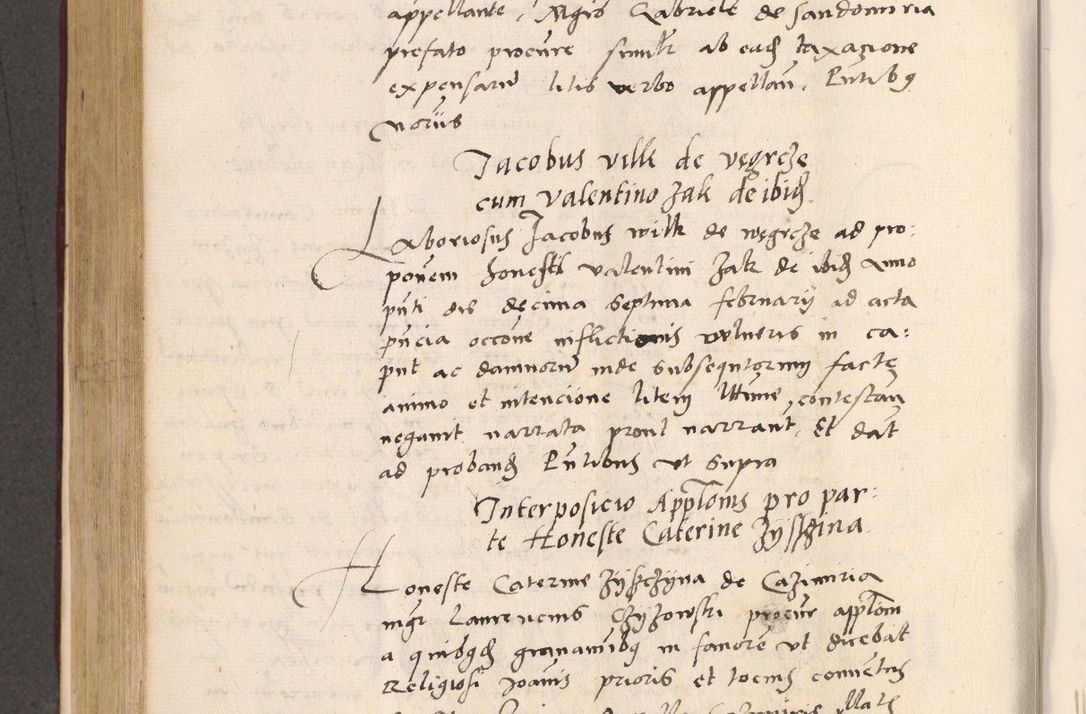 appellante, Mgro Gabriele de Sandomiria
prefato procure simlr ab eadz taxacione
expensaru litis verbo appellan. Pntibq
noriis
Jacobus vilk de vęgrcze
cum valentino zak de ibidz
Laboriosus Jacobus wilk de węgrcze ad pro:
ponem honesti valentini zak de ibidz Anno
pnti die dęcima septima februarij ad acta
pncia occone inflictionis vulneris in ca:
put ac damnoru inde subsequtorum factę
animo et intencione litem lttime contestan
negavit narrata prout narrant. Et dat
ad probandz Pntibus ut supra
Interposicio Appltonis pro par:
te Honeste Caterine
Honeste Caterine de Cazimiria
mgr Laurencius Czyzowski procur appltom
a quibqdz gravaminibq in favore ut dicebat
Religiosi Joanis prioris et tocius conventus